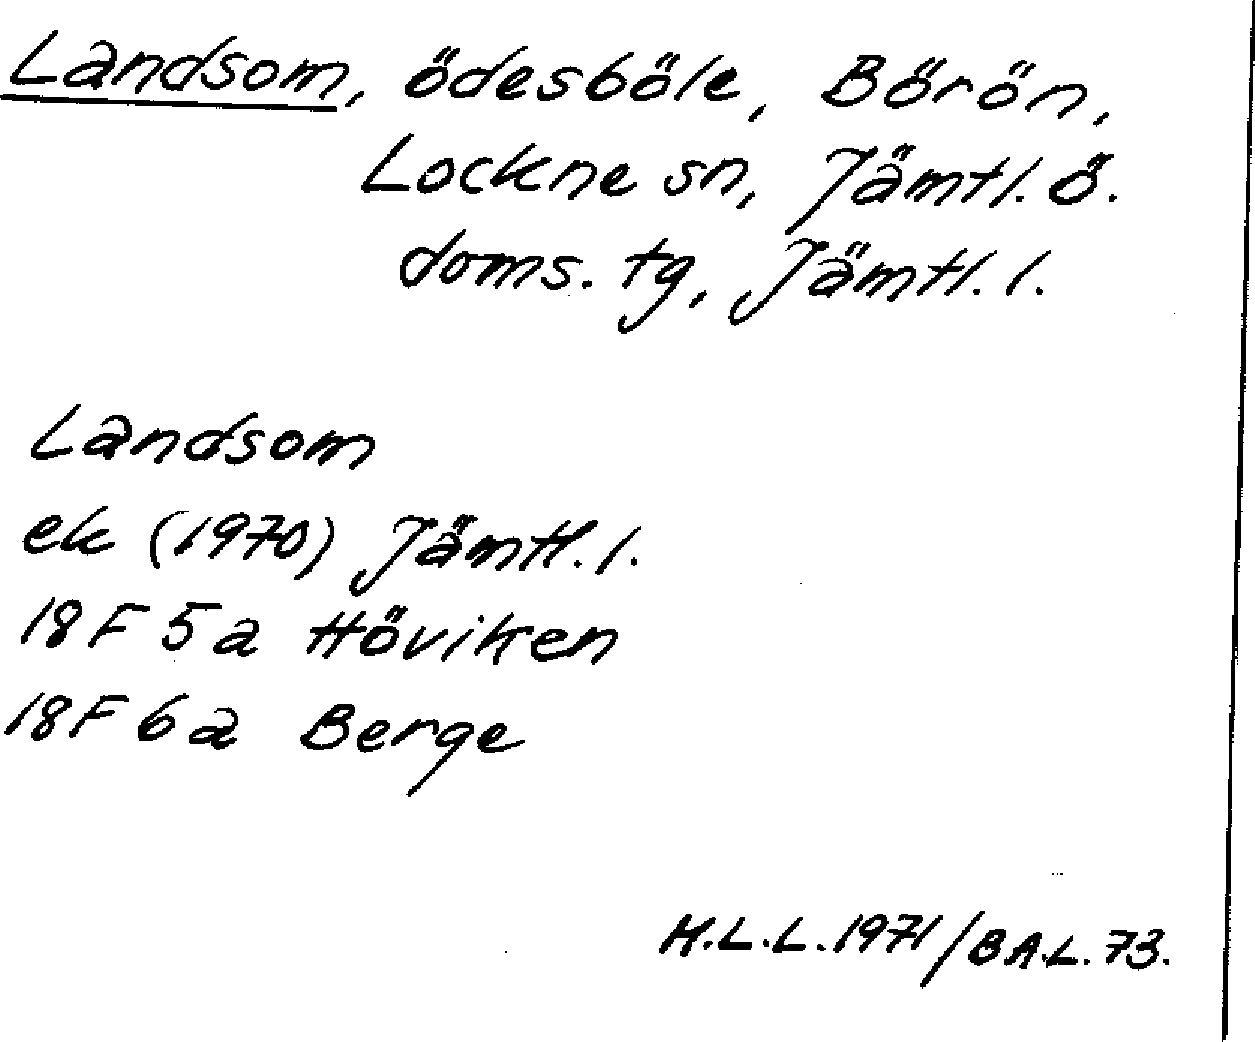 Landsom, ödesböle, Börön,
Lockne sn, Jämtl. ö.
doms. tg, Jämtl. l.
Landsom
ek (1970) Jämtl. l.
18F 5a Höviken
18F 6a Berge
H.L.L. 1971/BA.L. 73.